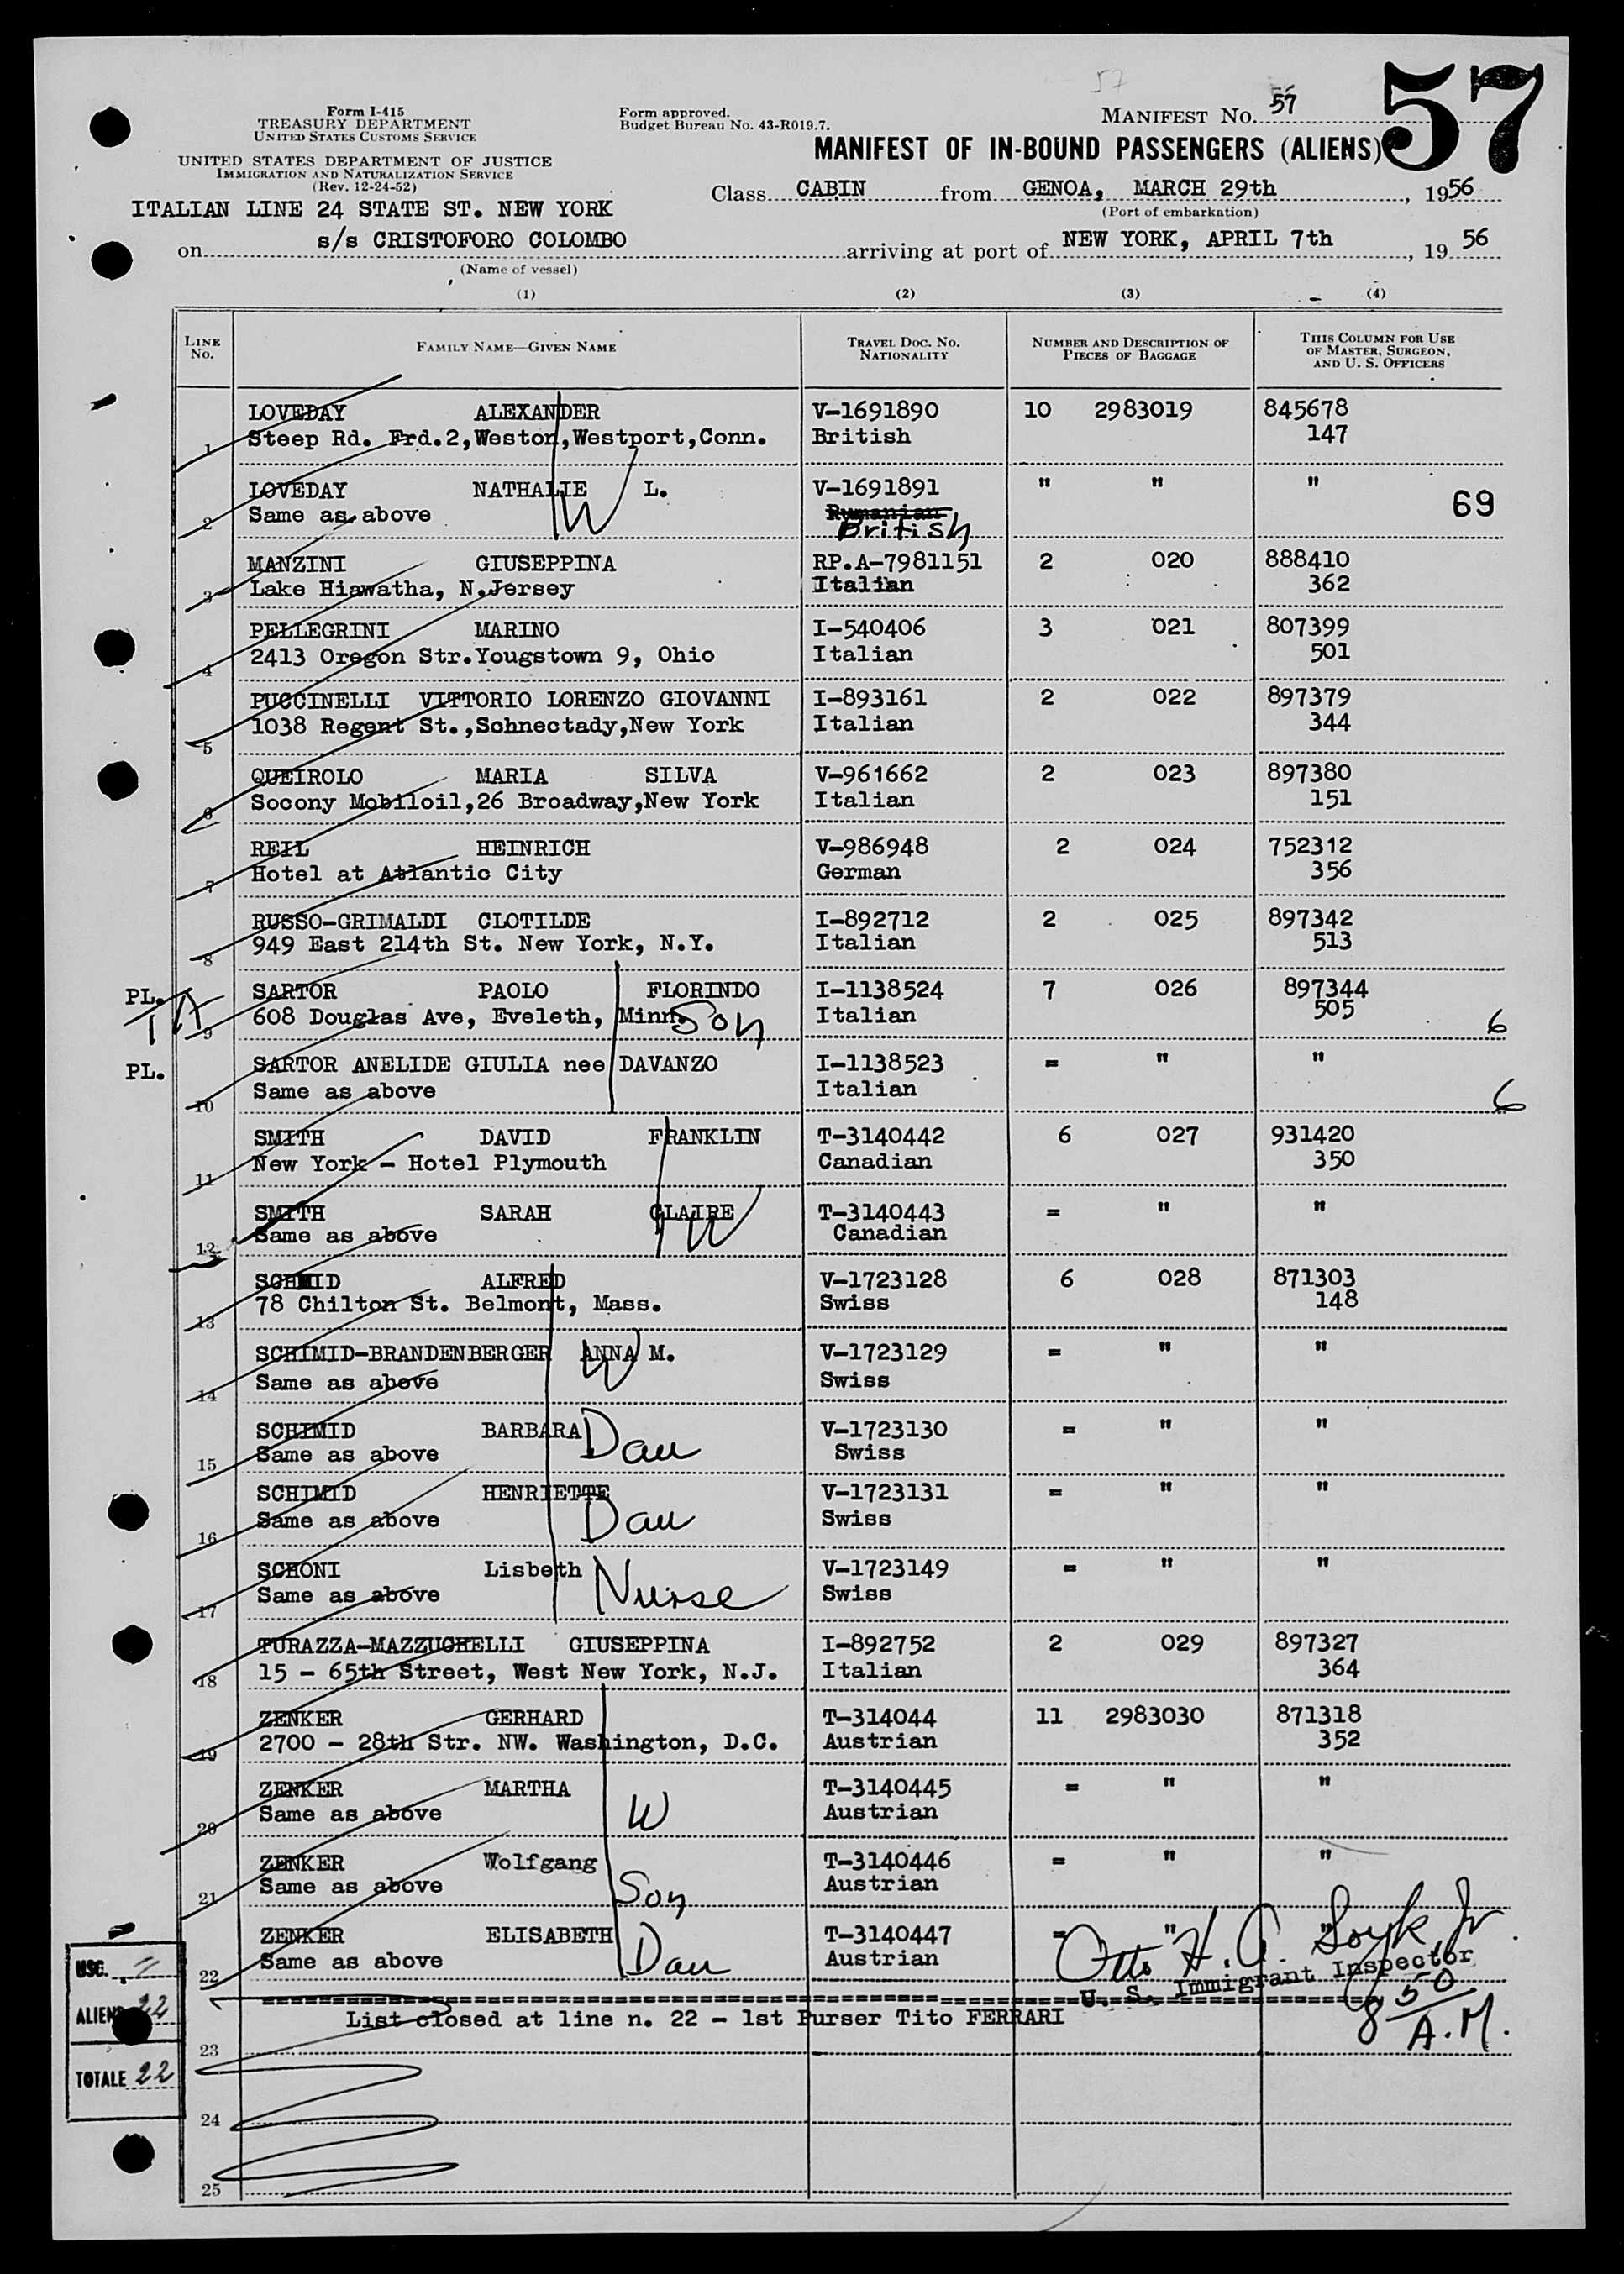 57
Form I-415
TREASURY DEPARTMENT
UNITED STATES CUSTOMS SERVICE
UNITED STATES DEPARTMENT OF JUSTICE
IMMIGRATION AND NATURALIZATION SERVICE
(Rev. 12-24-52)
Form approved.
Budget Bureau No. 43-R019.7.
MANIFEST No. 57
57
MANIFEST OF IN-BOUND PASSENGERS (ALIENS)
Class CABIN from GENOA, MARCH 29th, 1956
(Port of embarkation)
ITALIAN LINE 24 STATE ST. NEW YORK
on s/s CRISTOFORO COLOMBO arriving at port of NEW YORK, APRIL 7th, 19 56
(Name of vessel)
(1) (2) (3) (4)
LINE No. FAMILY NAME—GIVEN NAME TRAVEL DOC. No. NATIONALITY NUMBER AND DESCRIPTION OF PIECES OF BAGGAGE THIS COLUMN FOR USE OF MASTER, SURGEON, AND U. S. OFFICERS
LOVEDAY ALEXANDER V-1691890 10 2983019 845678
1 Steep Rd. Frd.2,Weston,Westport,Conn. British 147
LOVEDAY NATHALIE L. V-1691891 " " "
2 Same as above W Rumanian British 69
MANZINI GIUSEPPINA RP.A-7981151 2 020 888410
3 Lake Hiawatha, N.Jersey Italian 362
PELLEGRINI MARINO I-540406 3 021 807399
4 2413 Oregon Str.Yougstown 9, Ohio Italian 501
PUCCINELLI VITTORIO LORENZO GIOVANNI I-893161 2 022 897379
5 1038 Regent St.,Schnectady,New York Italian 344
QUEIROLO MARIA SILVA V-961662 2 023 897380
6 Socony Mobiloil,26 Broadway,New York Italian 151
REIL HEINRICH V-986948 2 024 752312
7 Hotel at Atlantic City German 356
RUSSO-GRIMALDI CLOTILDE I-892712 2 025 897342
8 949 East 214th St. New York, N.Y. Italian 513
PL. SARTOR PAOLO FLORINDO I-1138524 7 026 897344
9 608 Douglas Ave, Eveleth, Minn. Son Italian 505 6
PL. SARTOR ANELIDE GIULIA nee DAVANZO I-1138523 = " "
10 Same as above Italian 6
SMITH DAVID FRANKLIN T-3140442 6 027 931420
11 New York - Hotel Plymouth Canadian 350
SMITH SARAH CLAIRE T-3140443 = " "
12 Same as above W Canadian
SCHMID ALFRED V-1723128 6 028 871303
13 78 Chilton St. Belmont, Mass. Swiss 148
SCHIMID-BRANDENBERGER ANNA M. V-1723129 = " "
14 Same as above W Swiss
SCHIMID BARBARA V-1723130 = " "
15 Same as above Dau Swiss
SCHIMID HENRIETTE V-1723131 = " "
16 Same as above Dau Swiss
SCHONI Lisbeth V-1723149 = " "
17 Same as above Nurse Swiss
TURAZZA-MAZZUCHELLI GIUSEPPINA I-892752 2 029 897327
18 15 - 65th Street, West New York, N.J. Italian 364
ZENKER GERHARD T-314044 11 2983030 871318
19 2700 - 28th Str. NW. Washington, D.C. Austrian 352
ZENKER MARTHA T-3140445 = " "
20 Same as above W Austrian
ZENKER Wolfgang T-3140446 = " "
21 Same as above Son Austrian
ZENKER ELISABETH T-3140447 = " "
22 Same as above Dau Austrian
Otto H. Jr
U. S. Immigrant Inspector
8 50 A.M.
List closed at line n. 22 - 1st Purser Tito FERRARI
23
24
25
USC.
ALIEN 22
TOTALE 22